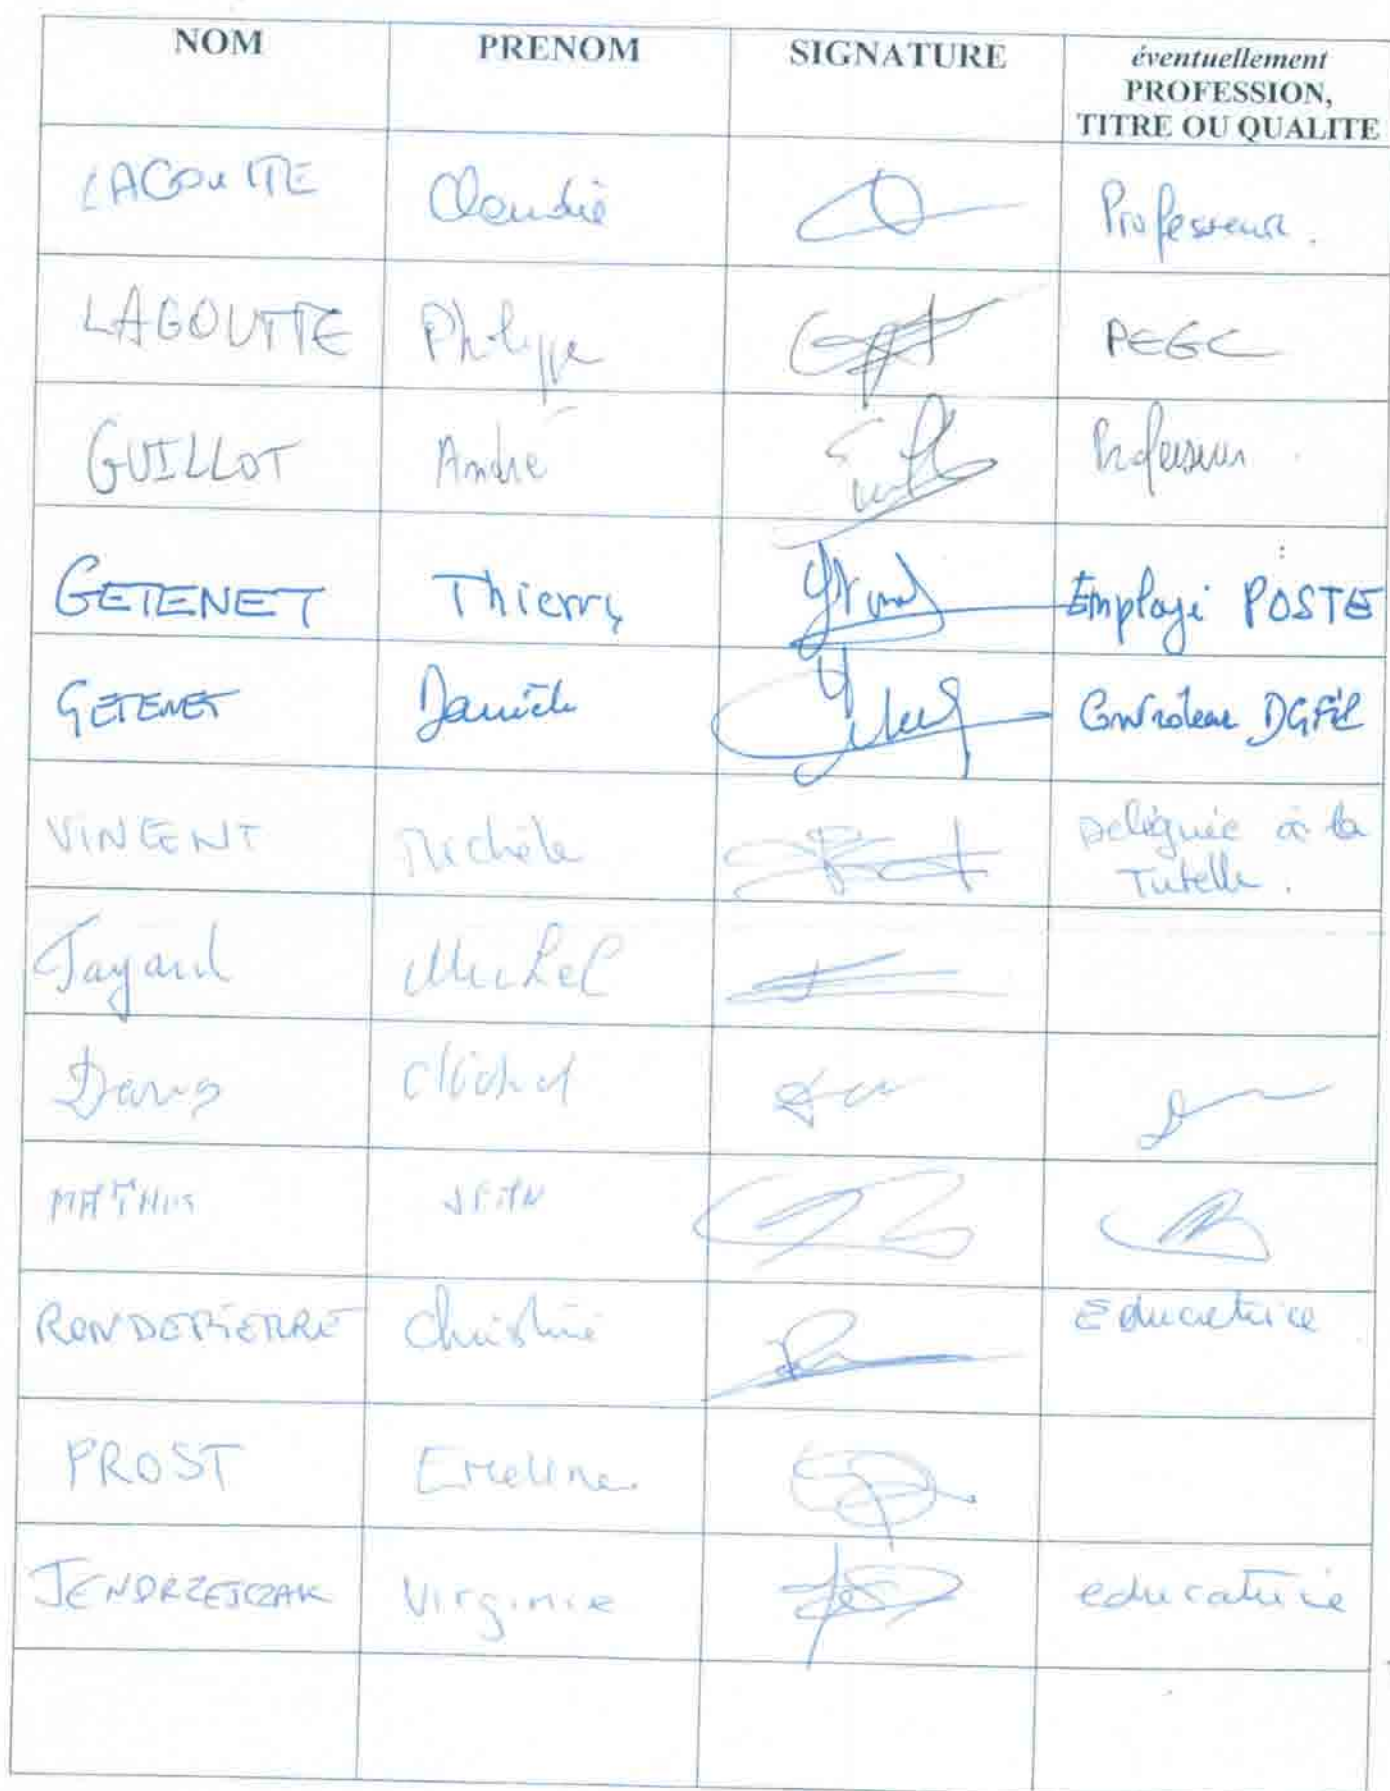 NOM PRENOM SIGNATURE éventuellement
PROFESSION,
TITRE OU QUALITE
LAGOUTTE Claudie Professeur.
LAGOUTTE Philippe PEGC
GUILLOT André Professeur
GETENET Thierry Employé POSTE
GETENET Danièle Contrôleur DGFiP
VINCENT Michèle Déléguée à la
Tutelle.
Michel
Michel
MATHIS JEAN
RONDEPIERRE Christine Educatrice
PROST Emeline
JENDRZEJCZAK Virginie educatrice